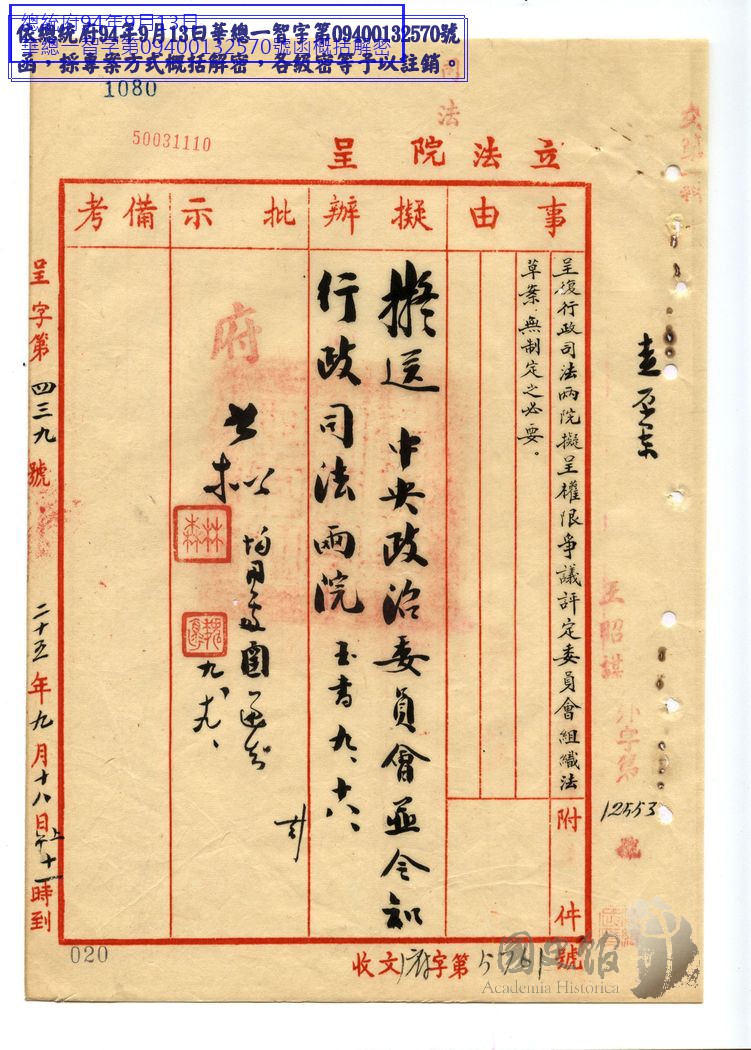 總統府94年9月13日
華總一智字第09400132570號函概括解密
依總統府94年9月13日華總一智字第09400132570號
函,採專案方式概括解密,各級密等予以註銷。
1080
50031110
法
立法院呈
事由
擬辦
批示
備考
呈復行政司法兩院擬呈權限爭議評定委員會組織法
草案,無制定之必要。
附件
擬送中央政治委員會並令知
行政司法兩院
九、十六、
府
林森
呈字第四三九號
二十五年九月十八日上午十一時到
王昭謀
外字第
12553
號
收文府字第5761號
020
國史館
Academia Historica